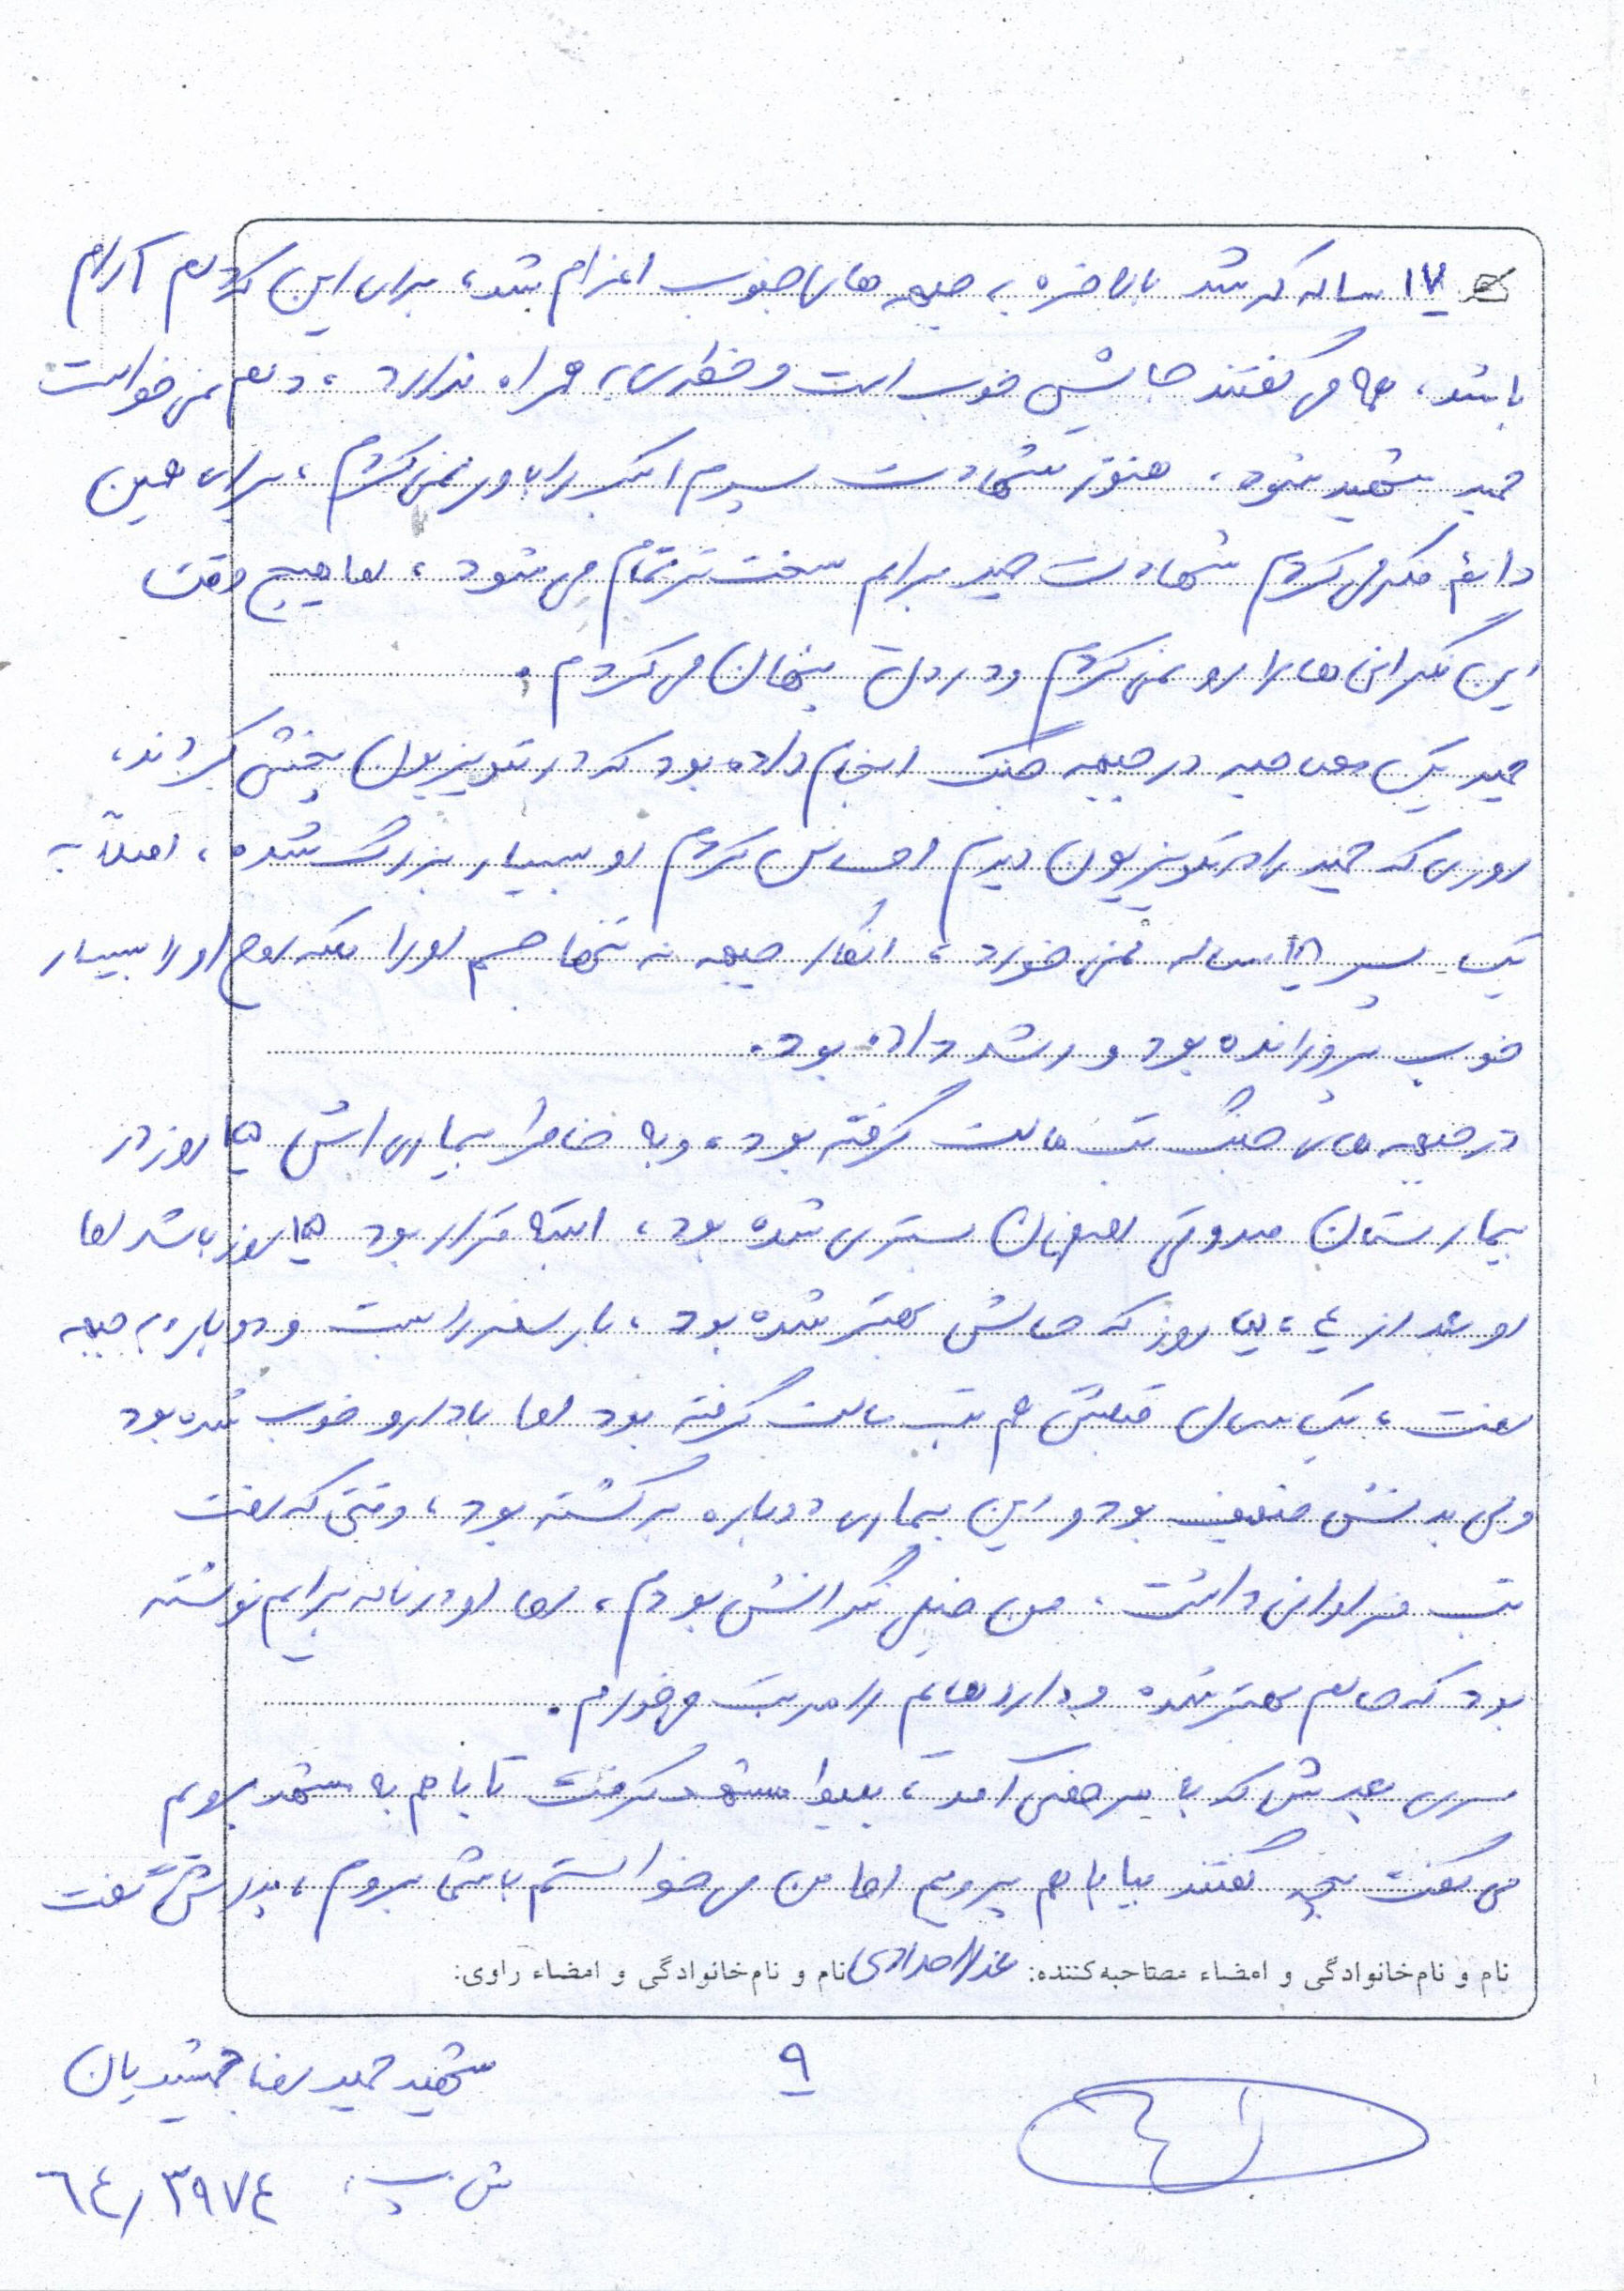 ۱۷ ساله که شد بالاخره به جبهه های جنوب اعزام شد، برای این که دلم آرام
باشد، همه می گفتند جایش خوب است و خطری به همراه ندارد، دلم نمی خواست
حمید شهید شود، هنوز شهادت پسرم اکبر را باور نمی کردم، برای همین
دائم فکر می کردم شهادت حمید برایم سخت تر تمام می شود، اما هیچ وقت
این نگرانی ها را رو نمی کردم و در دل پنهان می کردم.
حمید یک مصاحبه در جبهه جنگ انجام داده بود که در تلویزیون پخش کردند،
روزی که حمید را در تلویزیون دیدم احساس کردم او بسیار بزرگ شده، اصلاً به
یک پسر ۱۸ ساله نمی خورد، انگار جبهه نه تنها جسم او را بلکه روح او را بسیار
خوب پرورانده بود و رشد داده بود.
در جبهه های جنگ تب مالت گرفته بود، و به خاطر بیماری اش ۱۵ روز در
بیمارستان صدوقی اصفهان بستری شده بود، البته قرار بود ۱۵ روز باشد اما
او بعد از ۴، ۵ روز که حالش بهتر شده بود، بار سفر را بست و دوباره به جبهه
رفت، یک سال قبلش هم تب مالت گرفته بود اما با دارو خوب شده بود
ولی بدنش ضعیف بود و این بیماری دوباره برگشته بود، وقتی که رفت
تب فراوانی داشت. من خیلی نگرانش بودم، اما او در نامه برایم نوشته
بود که حالم بهتر شده و داروهایم را مرتب می خورم.
سری بعدش که به مرخصی آمد، بلیط مشهد گرفت تا با هم به مشهد برویم
می گفت بچه گفتند بیا با هم برویم اما من می خواستم با شما بروم، پدرش گفت
نام و نام‌خانوادگی و امضاء مصاحبه‌کننده: نام و نام‌خانوادگی و امضاء راوی:
۹
شهید حمیدرضا جمشیدیان
ش پ، ۶۴/۳۹۷۴